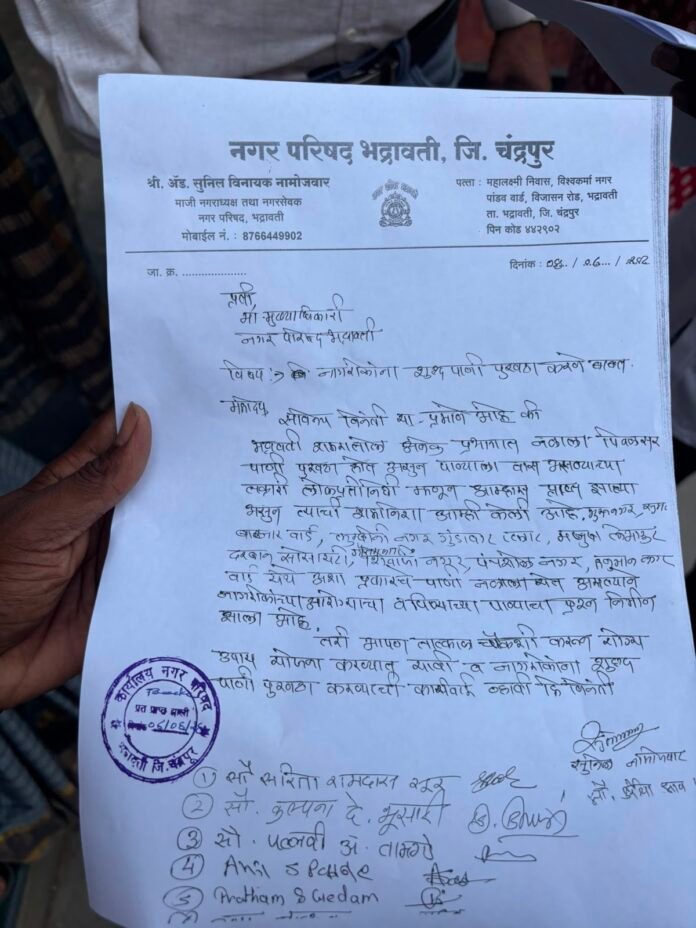 नगर परिषद भद्रावती, जि. चंद्रपुर
श्री. ॲड. सुनिल विनायक नामोजवार
माजी नगराध्यक्ष तथा नगरसेवक
नगर परिषद, भद्रावती
मोबाईल नं. : 8766449902
पत्ता : महालक्ष्मी निवास, विश्वकर्मा नगर
पांडव वार्ड, विजासन रोड, भद्रावती
ता. भद्रावती, जि. चंद्रपूर
पिन कोड ४४२९०२
जा. क्र. ....................
दिनांक :
प्रती,
मा. मुख्याधिकारी
नगर परिषद भद्रावती
विषय :- नागरीकांना शुध्द पाणी पुरवठा करणे बाबत.
महोदय,
सविनय विनंती या प्रमाणे आहे की
भद्रावती शहरातील अनेक प्रभागात नळाला पिवळसर
पाणी पुरवठा होत असुन पाण्याला वास असल्याच्या
तक्रारी लोकप्रतीनिधी म्हणुन आम्हास प्राप्त झाल्या
असुन त्याची आम्ही केली आहे.
बाजार वार्ड, नगर
दरबान सोसायटी, शिवाजी नगर, पंचशील नगर, हनुमान नगर
वार्ड येथे अशा प्रकारचे पाणी नळाला येत असल्याने
नागरीकांच्या आरोग्याचा व पिण्याच्या पाण्याचा प्रश्न निर्माण
झाला आहे.
तरी आपण तात्काळ चौकशी करून योग्य
उपाय योजना करण्यात यावी व नागरीकांना शुध्द
पाणी पुरवठा करण्याची कार्यवाही व्हावी हि विनंती
कार्यालय नगर परिषद
प्रत प्राप्त झाली
भद्रावती जि. चंद्रपूर
सुनिल नामोजवार
सौ.
① सौ सरिता रामदास सूर
② सौ. कल्पना दे. भुसारी
③ सौ. पल्लवी अ. तामगे
④ Anil S
⑤ Pratham S Gedam